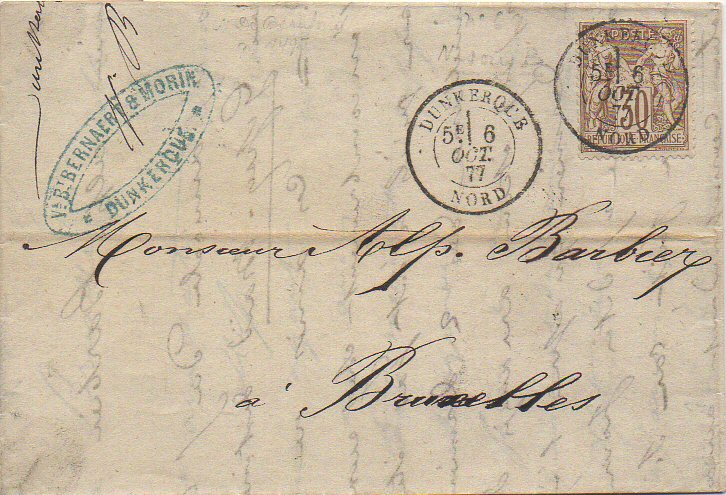 Ve Bt BERNAERT & MORIN
* DUNKERQUE *
DUNKERQUE
5E 6
OCT.
77
NORD
5E 6
OCT.
77
NORD
30
REPUBLIQUE FRANCAISE
Monsieur Alp. Barbier
à Bruxelles